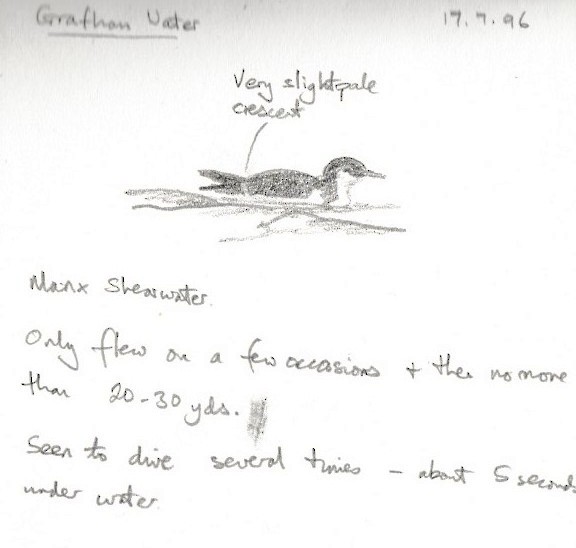 Grafham Water
17.9.96
Very slight pale
crescent
Manx Shearwater.
Only flew on a few occasions + then no more
than 20-30 yds.
Seen to dive several times - about 5 seconds
under water.